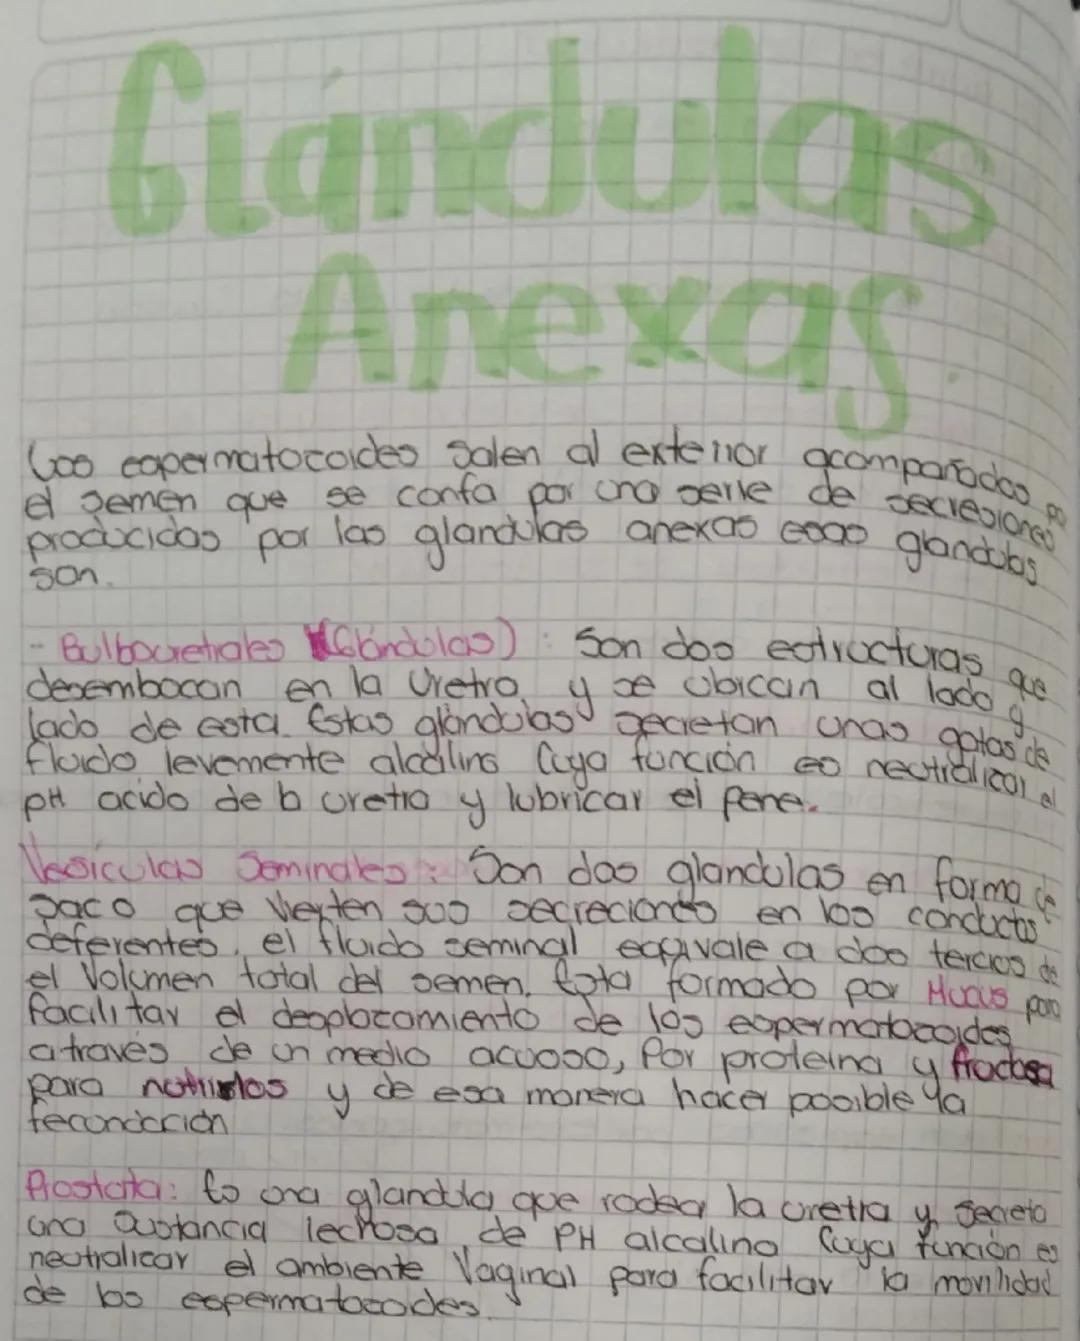 Glándulas
Anexas
Los espermatozoides salen al exterior acompañados po
el semen que se confa por una serie de secresiones
producidas por las glandulas anexas esas glandulas
son.
- Bulbouretrales (Glándulas): Son dos estructuras que
desembocan en la Uretra y se ubican al lado y
lado de esta. Estas glándulas secretan unas gotas de
fluido levemente alcalino Cuya función es neutralizar el
pH acido de la uretra y lubricar el pene.
Vesiculas Seminales: Son dos glandulas en forma de
saco que vierten sus secreciones en los conductos
deferentes, el fluido seminal equivale a dos tercios de
el Volumen total del semen. Esta formado por Mucus para
facilitar el desplazamiento de los espermatozoides
através de un medio acuoso, Por proteína y fructosa
para nutrirlos y de esa manera hacer posible la
fecundación
Prostata: Es una glandula que rodea la uretra y secreta
una sustancia lechosa de PH alcalino Cuya función es
neutralizar el ambiente Vaginal para facilitar la movilidad
de los espermatozodes.